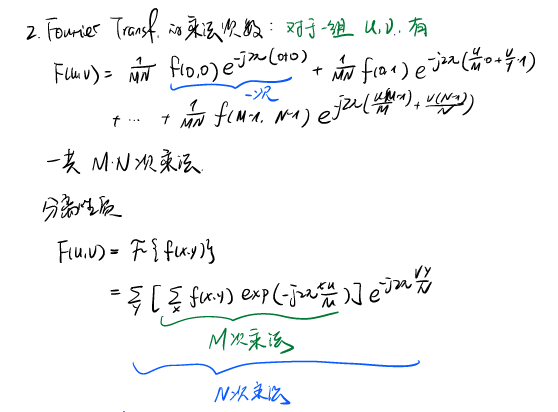 2. Fourier Transf. 的乘法次数: 对于一组 u,v, 有
F(u,v) = 1/MN f(0,0) e^{-j2π(0+0)} + 1/MN f(0,1) e^{-j2π(u/M·0+v/Y·1)}
一次
+ ... + 1/MN f(M-1, N-1) e^{j2π(u(M-1)/M + v(N-1)/N)}
一共 M·N 次乘法.
分离性质
F(u,v) = F{f(x,y)}
= Σ_y [Σ_x f(x,y) exp(-j2π xu/M)] e^{-j2π vy/N}
M次乘法
N次乘法